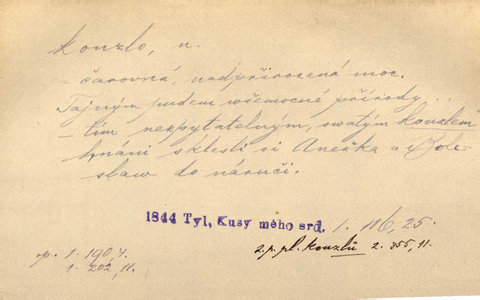 kouzlo, n.
– čarovná, nadpřirozená moc.
Tajným pudem wšemocné přírody . .
– tím nezpytatelným, swatým kouzlem
hnáni sklesli si Anežka a Bole-
slaw do náručí.
1844 Tyl, Kusy mého srd. 1. 116, 25.
2. p. pl. kouzlů 2. 355, 11.
1. 190, 4.
1. 202, 11.